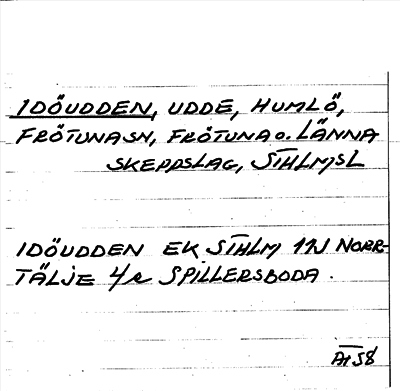 IDÖUDDEN, UDDE, HUMLÖ,
FRÖTUNASN, FRÖTUNA o. LÄNNA
SKEPPSLAG, STHLMSL
IDÖUDDEN EK STHLM 11J NORR-
TÄLJE 4/e SPILLERSBODA.